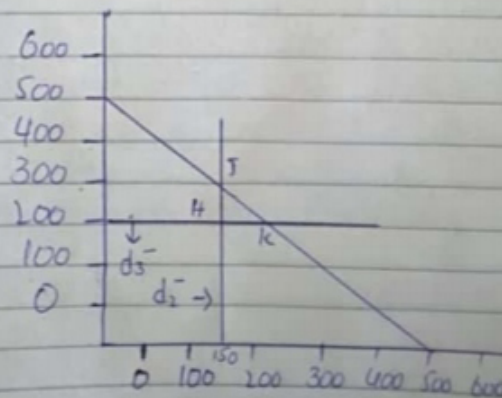 600
500
400
300 J
200 H K
100 d₃⁻
0 d₂⁻ →
0 100 150 200 300 400 500 600